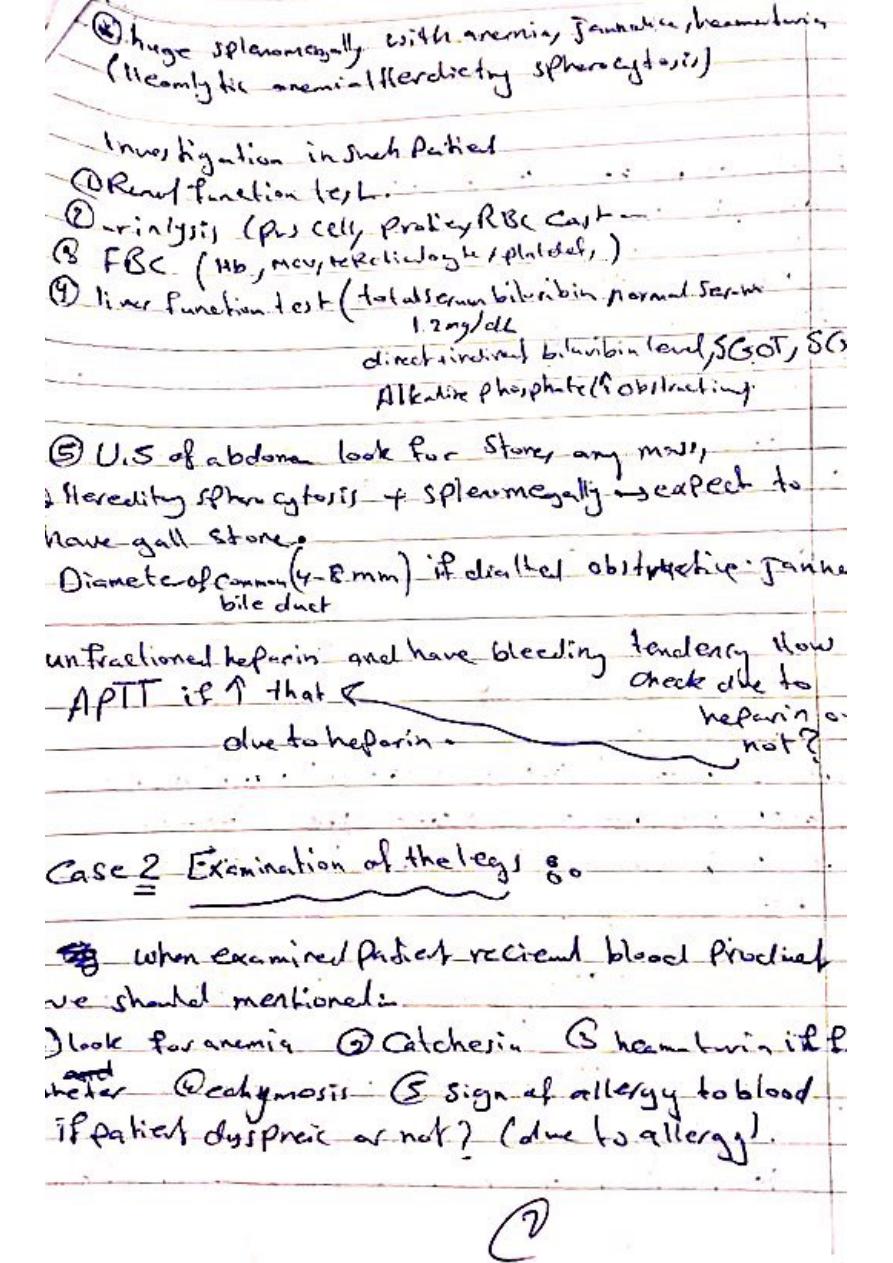 * huge splenomegally with anemia, jaundice, heamenturia
(Heomlytic anemia/Herdietry spherocytosis)
Investigation in such Patient
① Renal function test.
② urinlysis (pus cell, Protien, RBC Cast
③ FBC (Hb, MCV, Reticulocyte, platelet, )
④ liver function test (total serum biliribin normal Serum
1.2 mg/dL
direct+indirect biluribin level, SGOT, SG
Alkaline phosphate (↑ obstruction)
⑤ U.S of abdomen look for Stone, any mass,
Heredity spherocytosis + splenomegally → expect to
have gall stone.
Diameter of Common (4-8 mm) if dialted obstructive Jaun
bile duct
unfractioned heparin and have bleeding tendency How
APTT if ↑ that check due to
heparin o
due to heparin. not?
Case 2 Examination of the legs :.
when examined Patient recieved blood Product
we should mentioned:
) look for anemia ② Catchesia ③ heamturia if f
and
heter ④ echymosis ⑤ sign of allergy to blood
if patient dyspneic or not? (due to allergy).
7